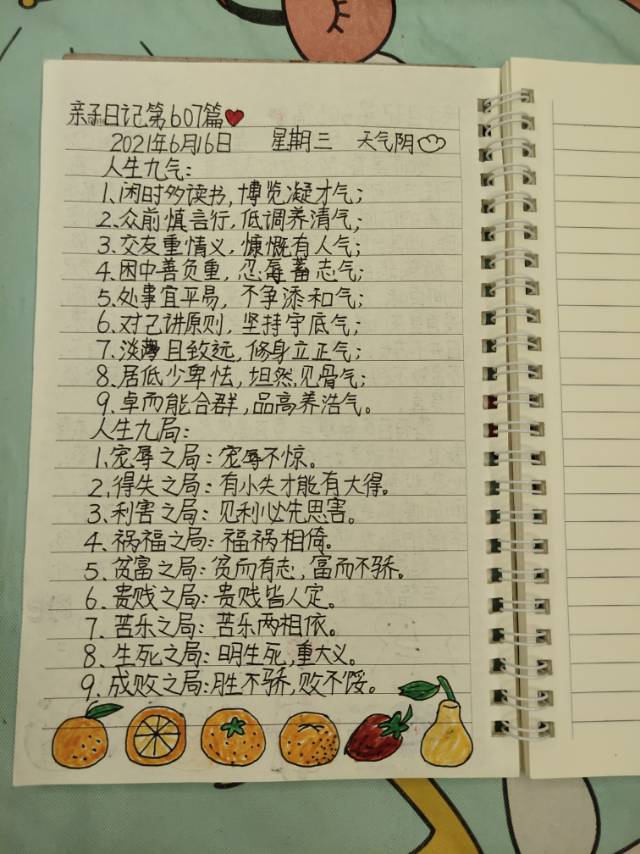 亲子日记第607篇
2021年6月16日 星期三 天气阴
人生九气：
1、闲时多读书，博览凝才气；
2、众前慎言行，低调养清气；
3、交友重情义，慷慨有人气；
4、困中善负重，忍辱蓄志气；
5、处事宜平易，不争添和气；
6、对己讲原则，坚持守底气；
7、淡薄且致远，修身立正气；
8、居低少卑怯，坦然见骨气；
9、卓而能合群，品高养浩气。
人生九局：
1、宠辱之局：宠辱不惊。
2、得失之局：有小失才能有大得。
3、利害之局：见利必先思害。
4、祸福之局：福祸相倚。
5、贫富之局：贫而有志，富而不骄。
6、贵贱之局：贵贱皆人定。
7、苦乐之局：苦乐两相依。
8、生死之局：明生死，重大义。
9、成败之局：胜不骄，败不馁。